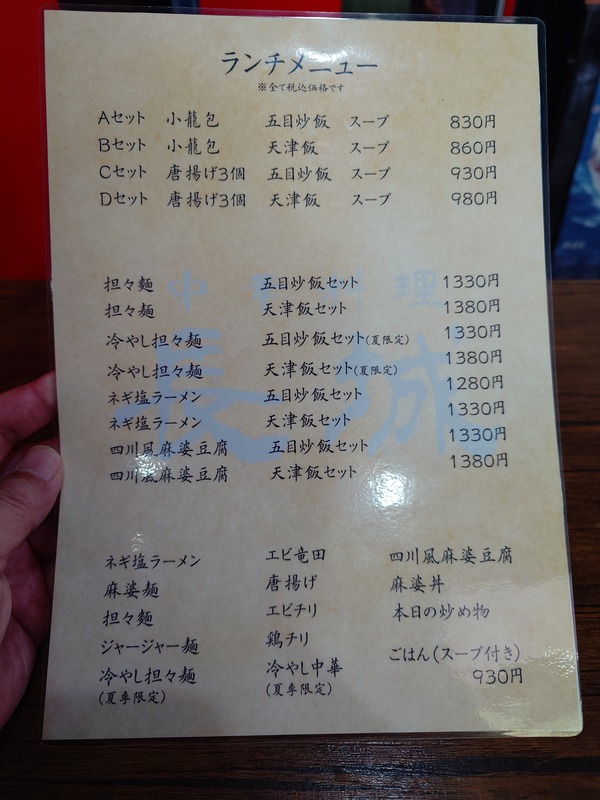 ランチメニュー
※全て税込価格です
Aセット 小龍包 五目炒飯 スープ 830円
Bセット 小龍包 天津飯 スープ 860円
Cセット 唐揚げ3個 五目炒飯 スープ 930円
Dセット 唐揚げ3個 天津飯 スープ 980円
担々麺 五目炒飯セット 1330円
担々麺 天津飯セット 1380円
冷やし担々麺 五目炒飯セット(夏限定) 1330円
冷やし担々麺 天津飯セット(夏限定) 1380円
ネギ塩ラーメン 五目炒飯セット 1280円
ネギ塩ラーメン 天津飯セット 1330円
四川風麻婆豆腐 五目炒飯セット 1330円
四川風麻婆豆腐 天津飯セット 1380円
ネギ塩ラーメン エビ竜田 四川風麻婆豆腐
麻婆麺 唐揚げ 麻婆丼
担々麺 エビチリ 本日の炒め物
ジャージャー麺 鶏チリ ごはん(スープ付き)
冷やし担々麺 冷やし中華 930円
(夏季限定) (夏季限定)